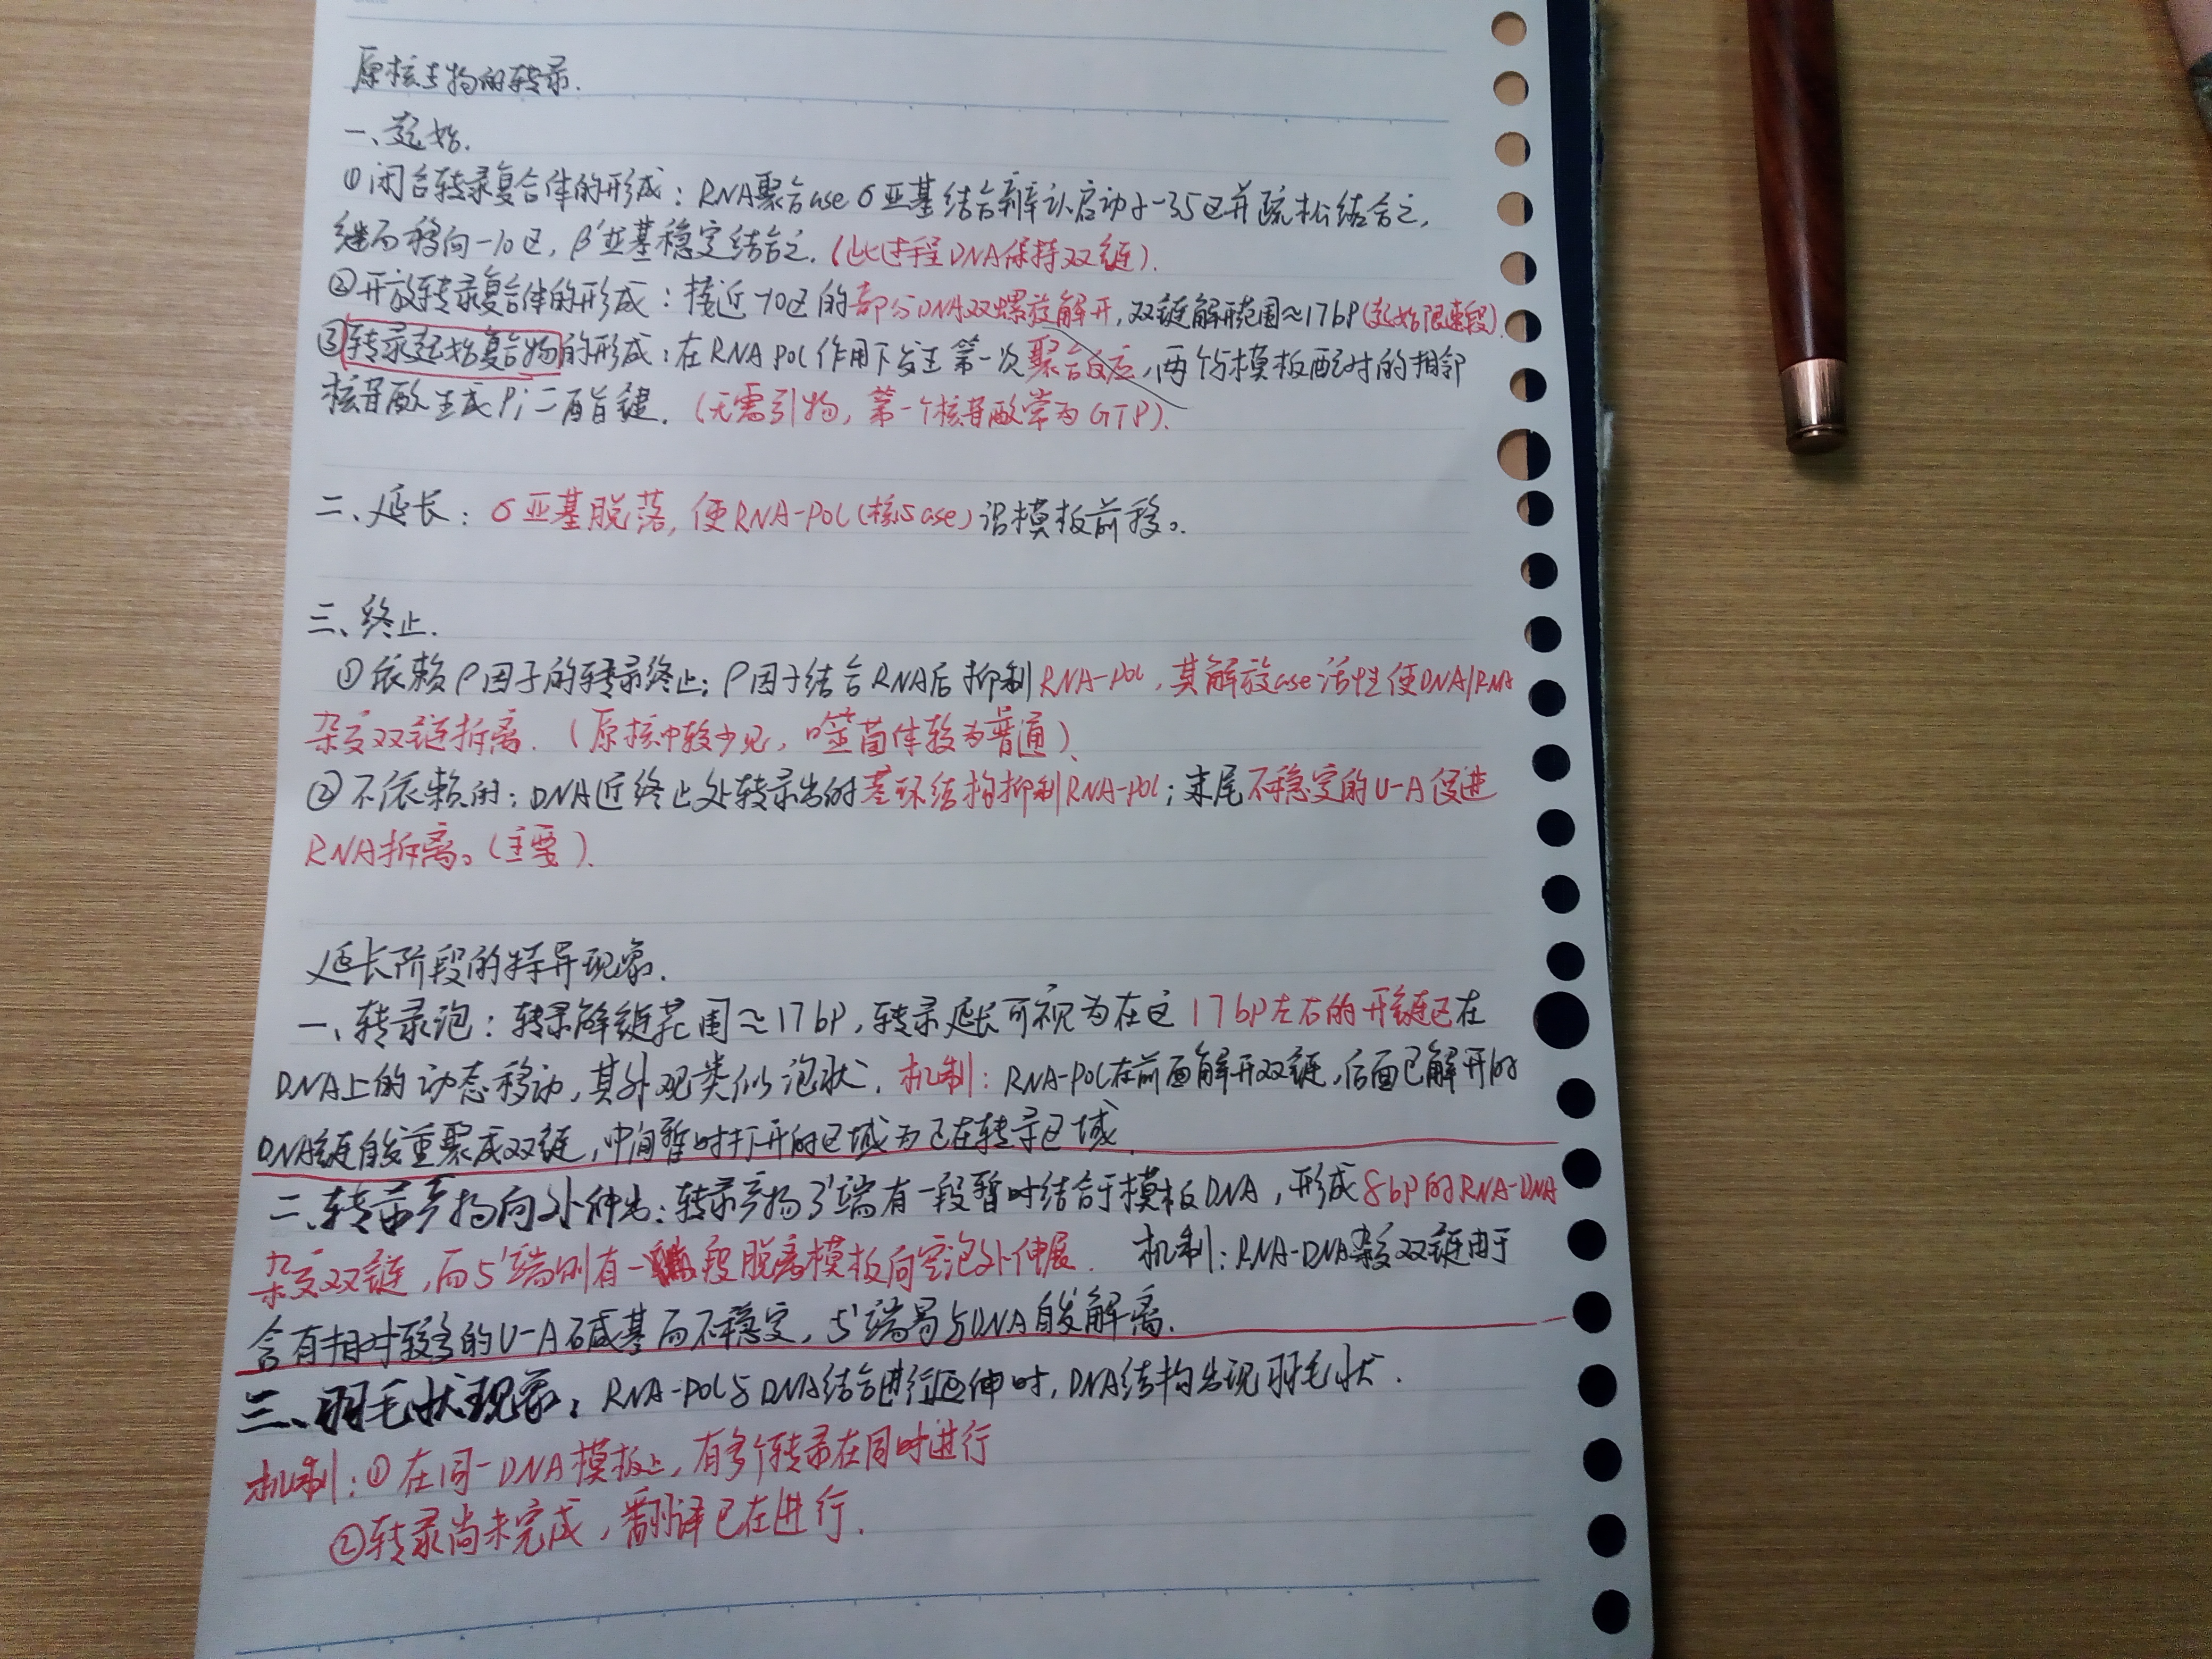 原核生物的转录.
一、起始.
①闭合转录复合体的形成：RNA聚合ase σ亚基结合辨认启动子-35区并疏松结合之，
继而移向-10区，β'亚基稳定结合之.（此过程DNA保持双链）.
②开放转录复合体的形成：接近-10区的部分DNA双螺旋解开，双链解开范围≈17bp(起始限速段).
③转录起始复合物的形成：在RNA POL作用下发生第一次聚合反应，两个与模板配对的相邻
核苷酸生成Pi二酯键.（无需引物，第一个核苷酸常为GTP）.
二、延长：σ亚基脱落，使RNA-POL(核心ase)沿模板前移。
三、终止.
①依赖ρ因子的转录终止：ρ因子结合RNA后抑制RNA-POL，其解旋ase活性使DNA/RNA
杂交双链拆离.（原核中较少见，噬菌体较为普通）.
②不依赖的：DNA近终止处转录出的茎环结构抑制RNA-POL；末尾不稳定的U-A促进
RNA拆离。(主要).
延长阶段的特异现象.
一、转录泡：转录解链范围≈17bp，转录延长可视为在这17bp左右的开链区在
DNA上的动态移动，其外观类似泡状.机制：RNA-POL在前面解开双链，后面已解开的
DNA链自发重聚成双链，中间暂时打开的区域为正在转录区域.
二、转录产物向外伸出：转录产物3'端有一段暂时结合于模板DNA，形成8bp的RNA-DNA
杂交双链，而5'端则有一段脱离模板向空泡外伸展. 机制：RNA-DNA杂交双链由于
含有相对较多的U-A碱基而不稳定，5'端易与DNA自发解离.
三、羽毛状现象：RNA-POL与DNA结合进行延伸时，DNA结构出现羽毛状.
机制：①在同一DNA模板上，有多个转录在同时进行
②转录尚未完成，翻译已在进行.